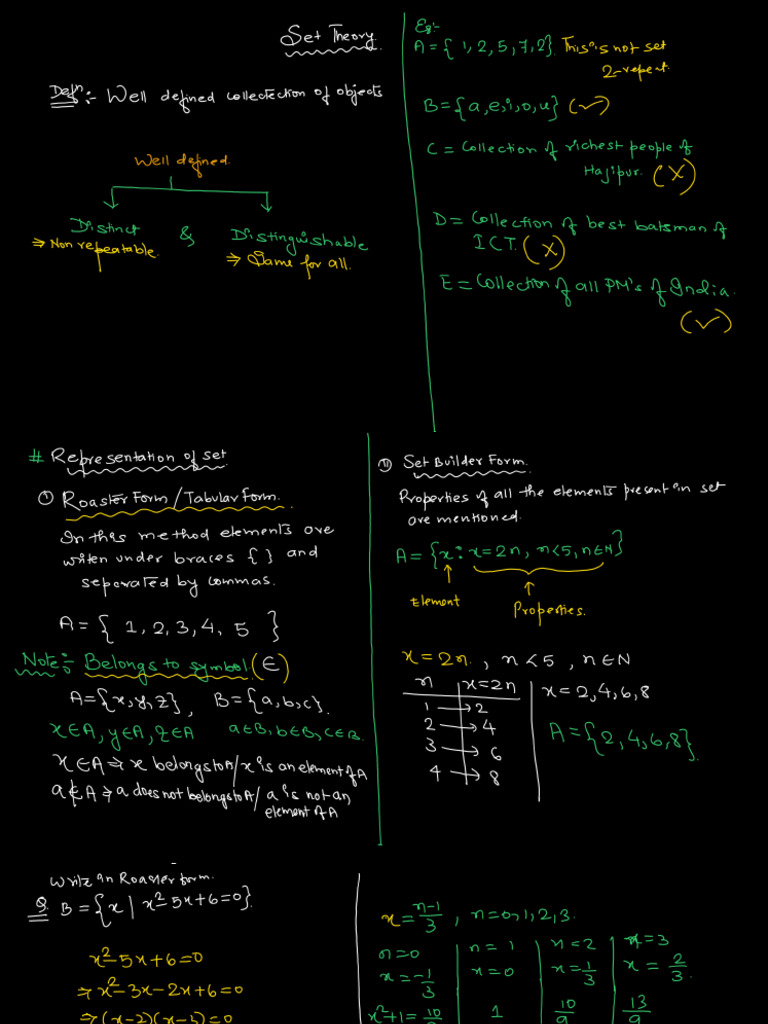 Set Theory.
Defn:- Well defined collectection of objects
Well defined.
Distinct & Distinguishable
⇒ Non repeatable.
⇒ Same for all.
Eg:-
A = { 1, 2, 5, 7, 2}. This is not set
2-repeat.
B = {a, e, i, o, u} (✓)
C = Collection of richest people of
Hajipur. (X)
D = Collection of best batsman of
ICT. (X)
E = Collection of all PM's of India.
(✓)
# Representation of set
① Roaster Form / Tabular form.
In this method elements are
writen under braces { } and
separated by commas.
A = { 1, 2, 3, 4, 5 }
Note:- Belongs to symbol (∈)
A = {x, y, z}, B = {a, b, c}.
x∈A, y∈A, z∈A a∈B, b∈B, c∈B.
x∈A ⇒ x belongs to A / x is an element of A
a∉A ⇒ a does not belongs to A / a is not an
element of A
② Set Builder Form.
Properties of all the elements present in set
are mentioned.
A = {x : x = 2n, n<5, n∈N}
Element
Properties.
x = 2n, n<5, n∈N
n x = 2n x = 2, 4, 6, 8
1 → 2
2 → 4 A = {2, 4, 6, 8}.
3 → 6
4 → 8
Write in Roaster form.
Q. B = {x | x²-5x+6=0}.
x²-5x+6=0
⇒ x²-3x-2x+6=0
⇒ (x-2)(x-3)=0
x = n-1/3, n=0, 1, 2, 3.
n=0 n=1 n=2 n=3
x = -1/3 x=0 x=1/3 x = 2/3.
x²+1 = 10/9 1 10/9 13/9